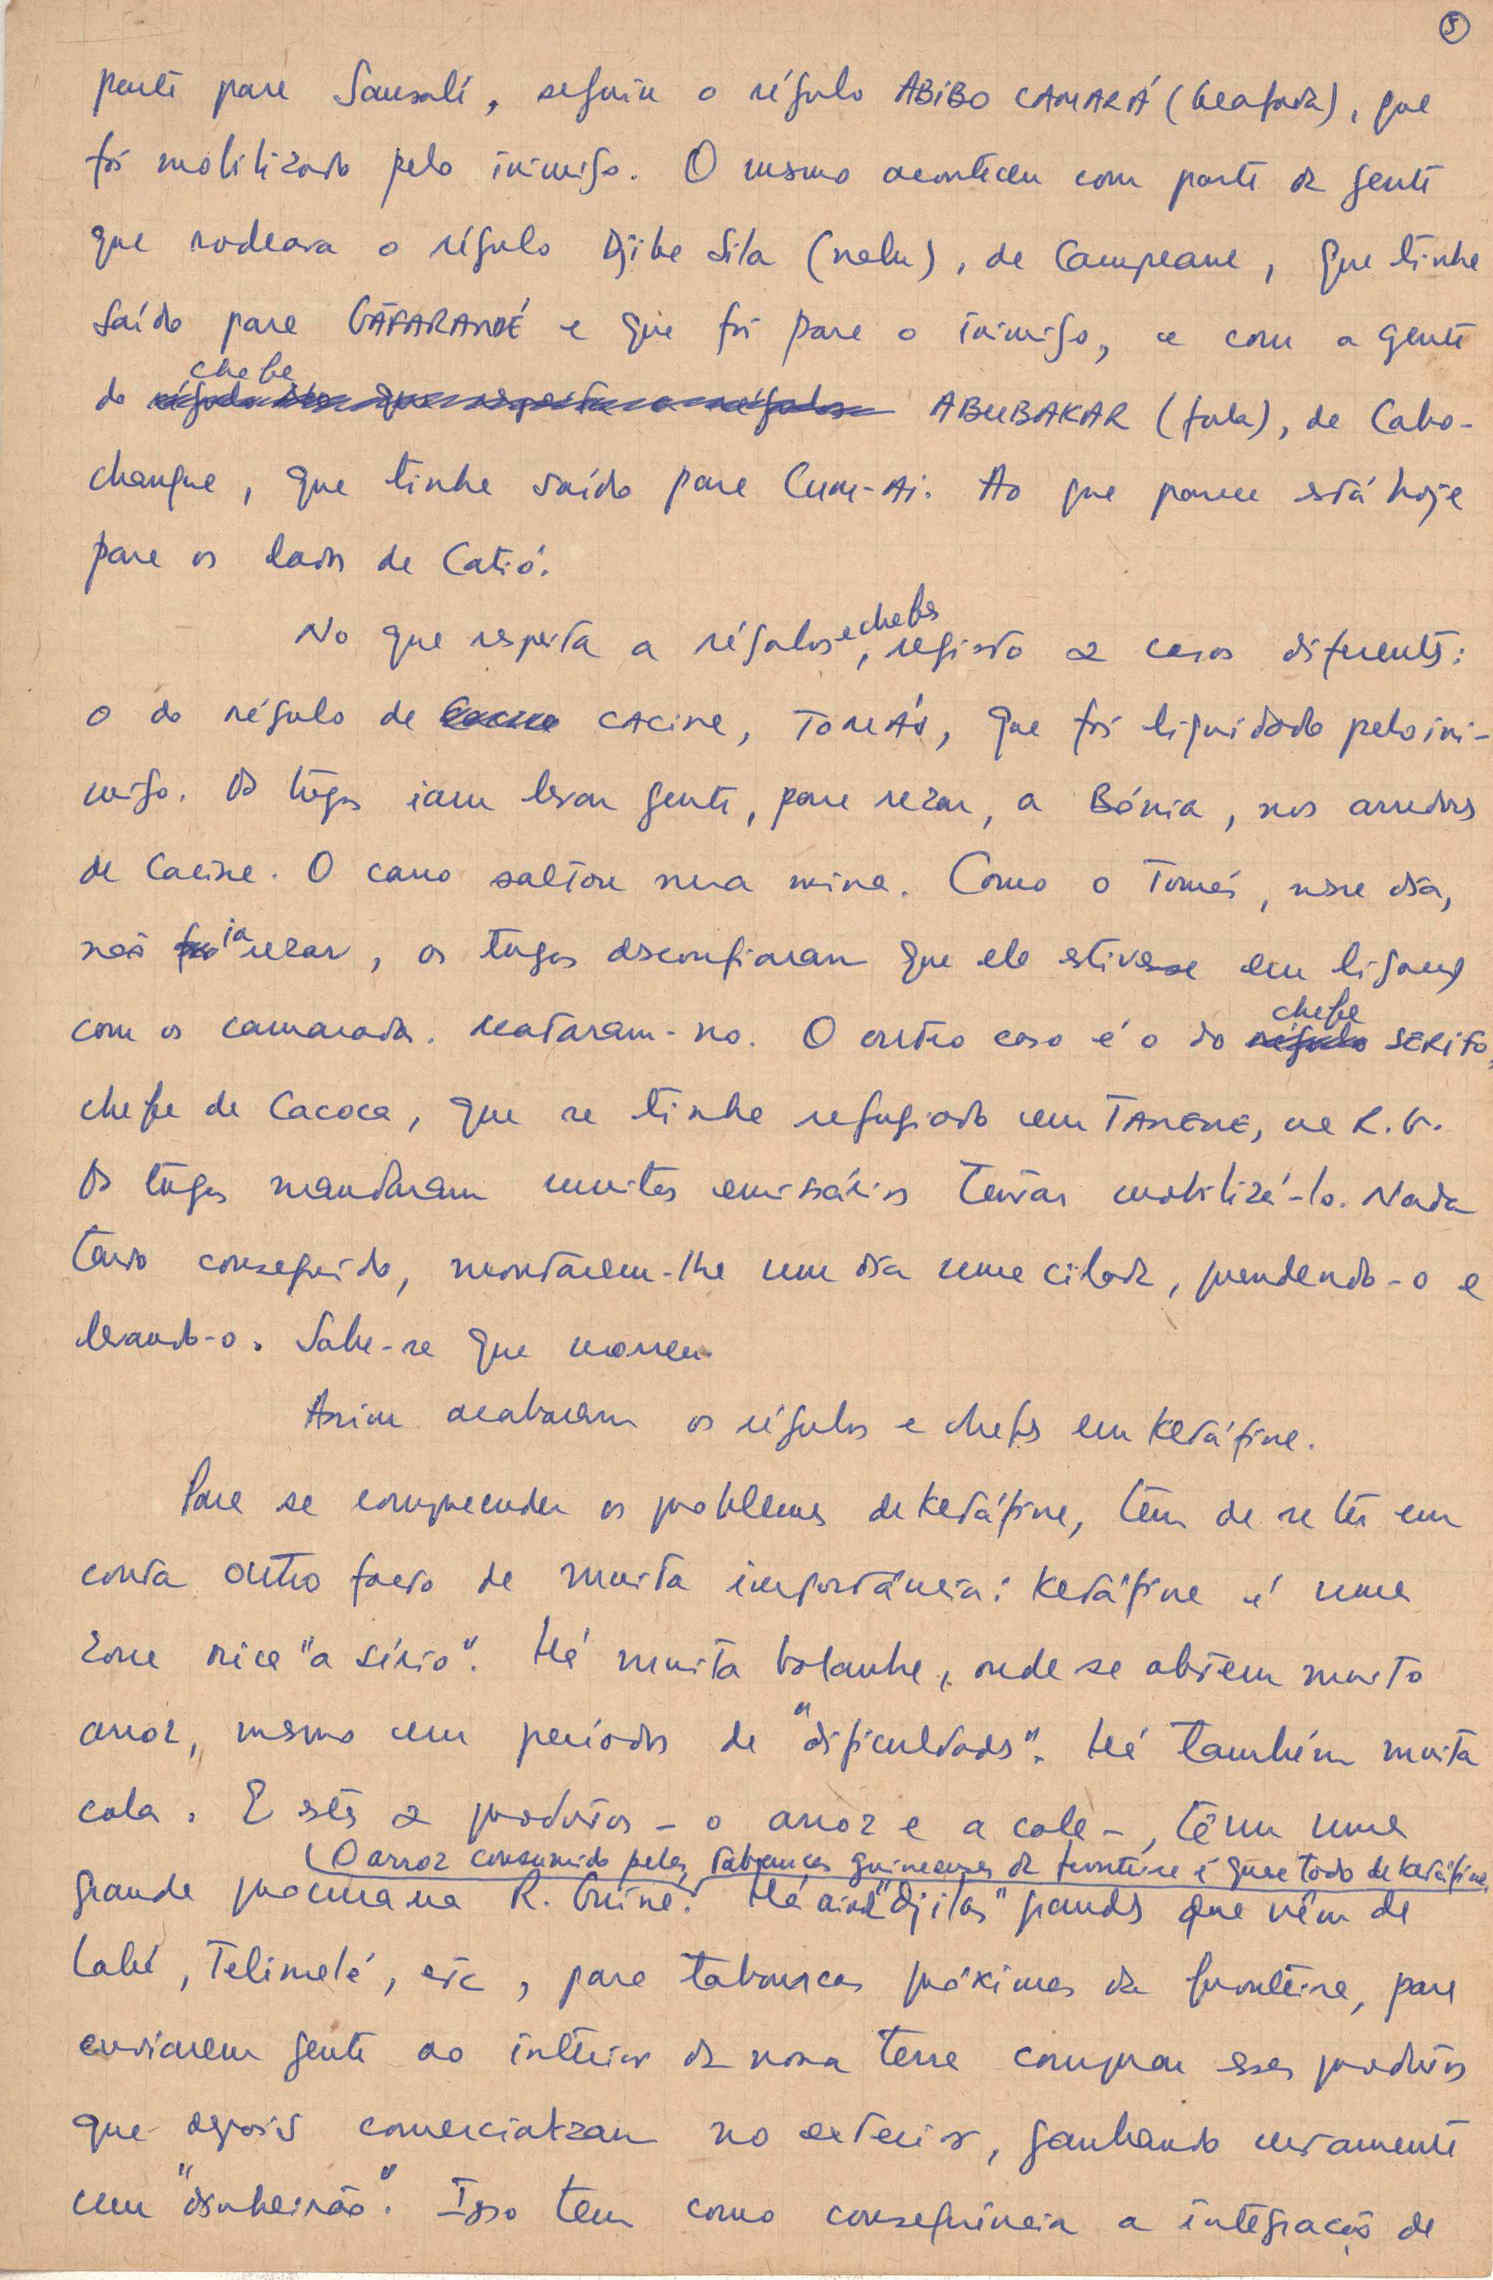 5
parte para Sansalé, seguiu o régulo ABIBO CAMARÁ (beafada), que
foi mobilizado pelo inimigo. O mesmo aconteceu com parte da gente
que rodeava o régulo Djibe Sila (nalu), de Campeane, que tinha
saído para GÃFARANDÉ e que foi para o inimigo, e com a gente
do chefe ABUBAKAR (fula), de Cabo-
changue, que tinha saído para Cum-Ai. Ao que parece está hoje
para os lados de Catió.
No que respeita a régulos e chefes, registo 2 casos diferentes:
o do régulo de CACINE, TOMÁS, que foi liquidado pelo ini-
migo. Os tugas iam levar gente, para rezar, a Bónia, nos arredores
de Cacine. O carro saltou numa mina. Como o Tomás, nesse dia,
não ia rezar, os tugas desconfiaram que ele estivesse em ligação
com os camaradas. Mataram-no. O outro caso é o do chefe SERIFO,
chefe de Cacoca, que se tinha refugiado em TANENE, na R.G.
Os tugas mandaram muitos emissários tentar mobilizá-lo. Nada
tendo conseguido, montaram-lhe um dia uma cilada, prendendo-o e
levando-o. Sabe-se que morreu.
Assim acabaram os régulos e chefes em Ketáfine.
Para se compreender os problemas de Ketáfine, têm de se ter em
conta outro facto de muita importância: Ketáfine é uma
zona rica "a sério". Há muita bolanha, onde se obtem muito
arroz, mesmo em períodos de "dificuldades". Há também muita
cola. Estes 2 produtos - o arroz e a cola -, têm uma
grande procura na R. Guiné. (O arroz consumido pelas tabancas guineenses da fronteira é quase todo de Ketáfine
Há ainda "djilas" grandes que vêm de
Labé, Telimelé, etc, para tabancas próximas da fronteira, para
enviarem gente ao interior da nossa terra comprar esses produtos
que depois comercializam no exterior, ganhando certamente
um "dinheirão". Isso tem como consequência a integração de